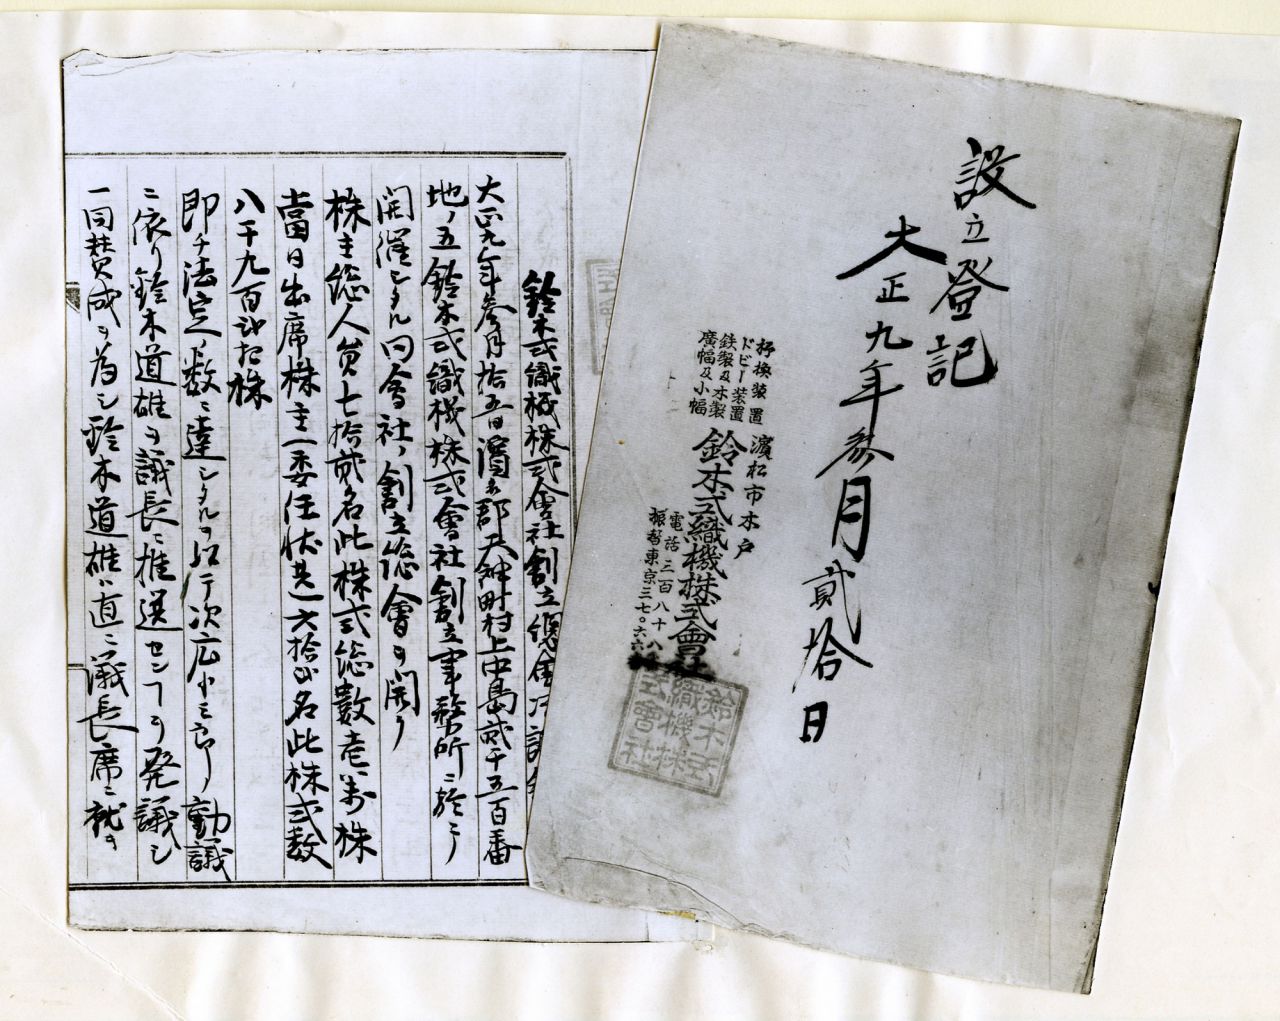 設立登記
大正九年参月貳拾日
杼換装置
ドビー装置
鉄製及木製
廣幅及小幅
濱松市木戸
鈴木式織機株式會社
電話三百八十八
振替東京三七〇六六
鈴木式
織機株
式會社
鈴木式織機株式會社創立總會決議録
大正九年参月拾五日濱名郡天神町村上中島貳千五百番
地ノ五鈴木式織機株式會社創立事務所ニ於テ
開催シタル同會社ノ創立總會ヲ開ク
株主總人員七拾貳名此株式總數壱万株
當日出席株主(委任状共)六拾名此株式数
八千九百株
即チ法定ノ数ニ達シタルヲ以テ次広小三郎ノ動議
ニ依リ鈴木道雄ヲ議長ニ推選センコトヲ発議シ
一同賛成ヲ為シ鈴木道雄ハ直ニ議長席ニ就ク